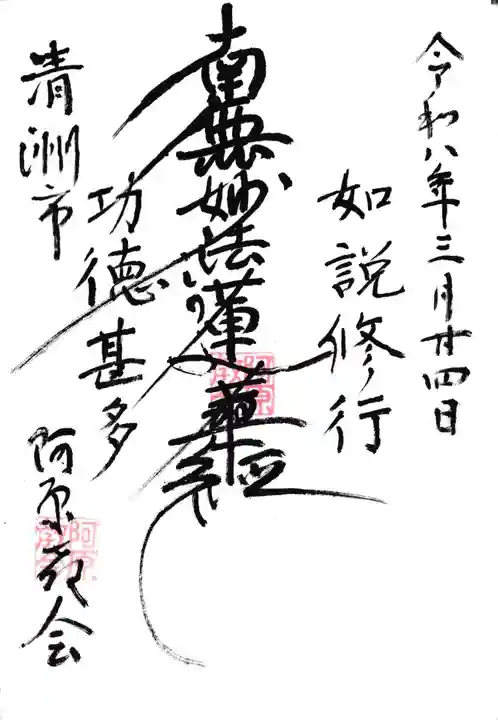 令和八年三月廿四日
如説修行
南無妙法蓮華経
功徳甚多
清洲市
阿原教会
阿原
阿原